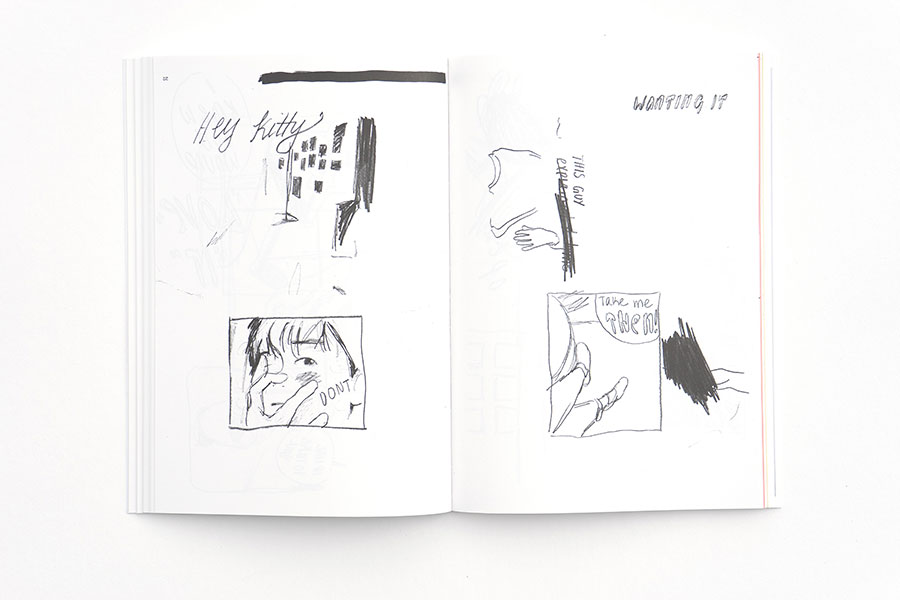 Hey kitty
DONT
WANTING IT
THIS GUY
Take me
THEN!